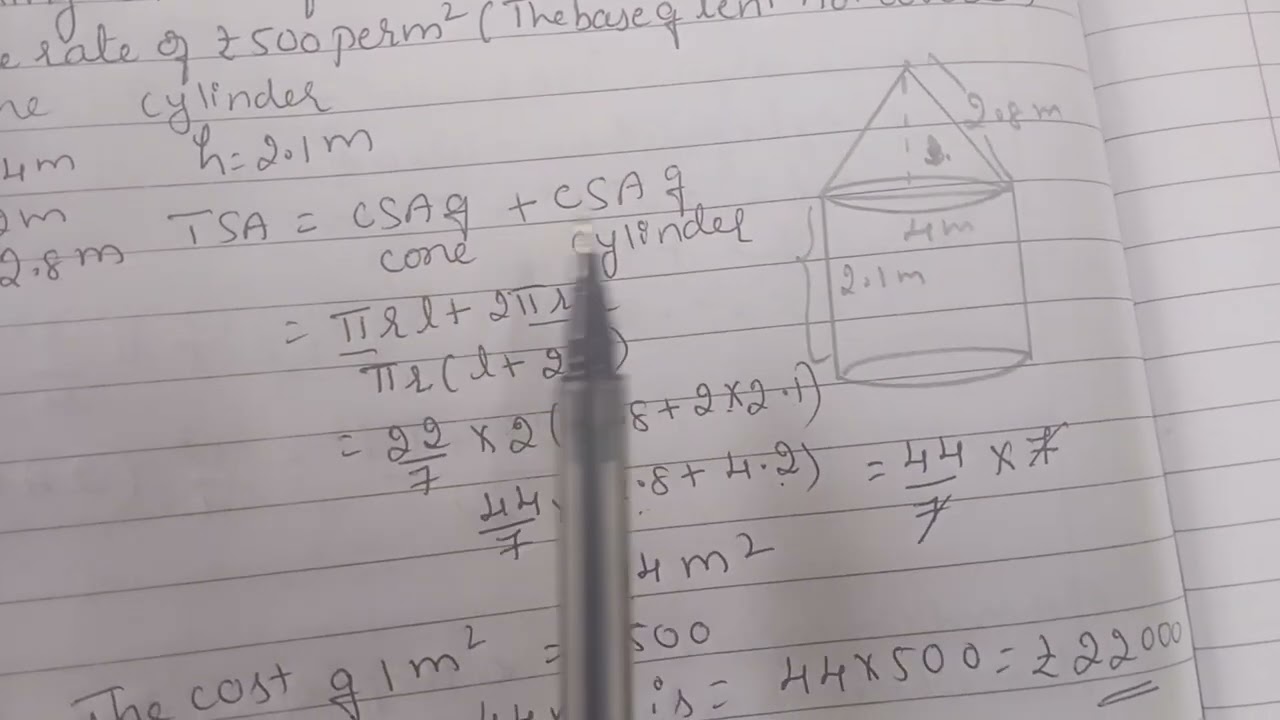 rate of ₹500 per m² (The base of tent
cylinder
4m h = 2.1m
m TSA = CSA of + CSA of
2.8m cone cylinder
= πrl + 2πr
πr(l + 2
= 22/7 × 2( 8 + 2×2.1)
44/7 .8 + 4.2) = 44/7 × 7
4 m²
The cost of 1m² = 500
is = 44×500 = ₹22000
2.8m
4m
2.1m